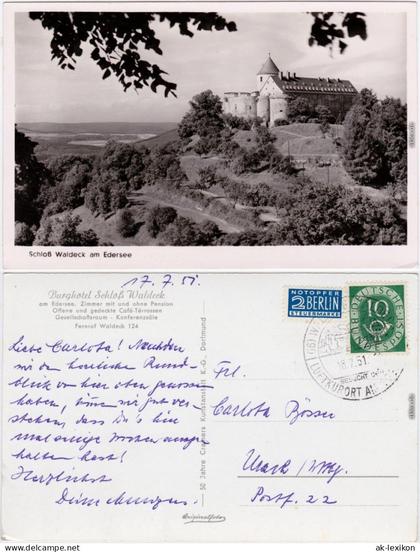 Schloß Waldeck am Edersee
17.7.51.
Burghotel Schloß Waldeck
am Edersee. Zimmer mit und ohne Pension
Offene und gedeckte Café-Terrassen
Gesellschaftsraum - Konferenzsäle
Fernruf Waldeck 124
Liebe Carlota! Nachdem
wir den herrlichen Rund-
blick von hier oben genossen
haben, können wir gut ver-
stehen, dass Du hier
mal einige Wochen
halten hast!
Herzlichst
Deine
50 Jahre Cramers Kunstanstalt K.-G., Dortmund
Originalfoto
NOTOPFER
2 BERLIN
STEUERMARKE
DEUTSCHE
10
18.7.51
LUFTKURORT AM
Frl.
Carlota
Postf. 22
© ak-lexikon.de